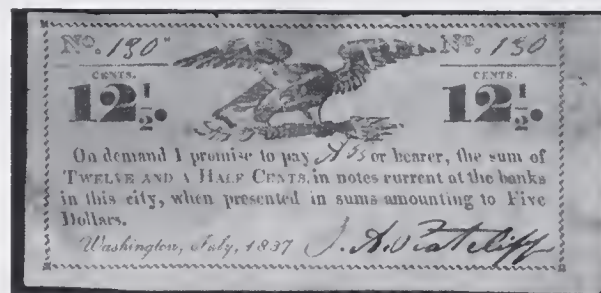 No. 130 No. 130
CENTS. CENTS.
12½. 12½.
On demand I promise to pay or bearer, the sum of
TWELVE AND A HALF CENTS, in notes current at the banks
in this city, when presented in sums amounting to Five
Dollars.
Washington, July, 1837 J. A. Ratcliff